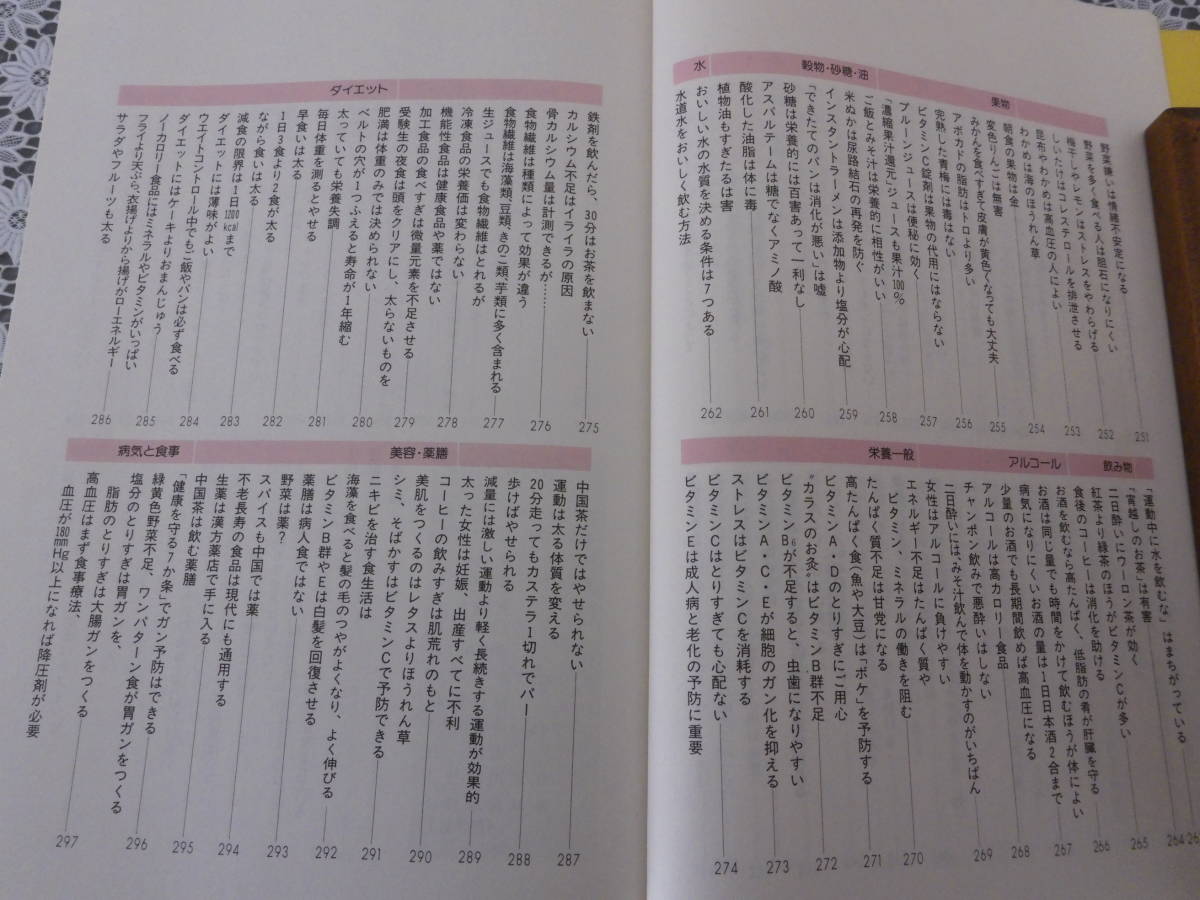 野菜嫌いは情緒不安定になる
251
野菜を多く食べる人は胆石になりにくい
梅干しやレモンはストレスをやわらげる
252
しいたけはコレステロールを排泄させる
昆布やわかめは高血圧の人によい
253
わかめは海のほうれん草
254
果物
朝食の果物は金
変色りんごは無害
255
みかんを食べすぎて皮膚が黄色くなっても大丈夫
アボカドの脂肪はトロより多い
256
完熟した青梅には毒はない
ビタミンC錠剤は果物の代用にはならない
257
プルーンジュースは便秘に効く
「濃縮果汁還元」ジュースも果汁100%
258
穀物・砂糖・油
ご飯とみそ汁は栄養的に相性がいい
米ぬかは尿路結石の再発を防ぐ
259
インスタントラーメンは添加物より塩分が心配
「できたてのパンは消化が悪い」は嘘
260
砂糖は栄養的には百害あって一利なし
アスパルテームは糖でなくアミノ酸
261
酸化した油脂は体に毒
植物油もすぎたるは害
262
水
おいしい水の水質を決める条件は7つある
水道水をおいしく飲む方法
「運動中に水を飲むな」はまちがっている
飲み物
「宵越しのお茶」は有害
264
二日酔いにウーロン茶が効く
265
紅茶より緑茶のほうがビタミンCが多い
食後のコーヒーは消化を助ける
266
アルコール
お酒を飲むなら高たんぱく、低脂肪の肴が肝臓を守る
お酒は同じ量でも時間をかけて飲むほうが体によい
267
病気になりにくいお酒の量は1日日本酒2合まで
少量のお酒でも長期間飲めば高血圧になる
268
アルコールは高カロリー食品
チャンポン飲みで悪酔いはしない
269
二日酔いには、みそ汁飲んで体を動かすのがいちばん
女性はアルコールに負けやすい
栄養一般
エネルギー不足はたんぱく質や
ビタミン、ミネラルの働きを阻む
270
たんぱく質不足は甘党になる
271
高たんぱく食(魚や大豆)は「ボケ」を予防する
ビタミンA・Dのとりすぎにご用心
272
“カラスのお灸”はビタミンB群不足
ビタミンB6が不足すると、虫歯になりやすい
273
ビタミンA・C・Eが細胞のガン化を抑える
ストレスはビタミンCを消耗する
ビタミンCはとりすぎても心配ない
274
ビタミンEは成人病と老化の予防に重要
鉄剤を飲んだら、30分はお茶を飲まない
275
カルシウム不足はイライラの原因
骨カルシウム量は計測できるが……
276
食物繊維は種類によって効果が違う
食物繊維は海藻類、豆類、きのこ類、芋類に多く含まれる
277
生ジュースでも食物繊維はとれるが
冷凍食品の栄養価は変わらない
278
機能性食品は健康食品や薬ではない
加工食品の食べすぎは微量元素を不足させる
279
受験生の夜食は頭をクリアにし、太らないものを
ダイエット
肥満は体重のみでは決められない
280
ベルトの穴が1つふえると寿命が1年縮む
太っていても栄養失調
281
毎日体重を測るとやせる
早食いは太る
282
1日3食より2食が太る
ながら食いは太る
283
減食の限界は1日1200kcalまで
ダイエットには薄味がよい
284
ウエイトコントロール中でもご飯やパンは必ず食べる
ダイエットにはケーキよりおまんじゅう
285
ノーカロリー食品にはミネラルやビタミンがいっぱい
フライより天ぷら、衣揚げよりから揚げがローエネルギー
286
サラダやフルーツも太る
中国茶だけではやせられない
287
運動は太る体質を変える
20分走ってもカステラ1切れでパー
288
歩けばやせられる
減量には激しい運動より軽く長続きする運動が効果的
289
太った女性は妊娠、出産すべてに不利
美容・薬膳
コーヒーの飲みすぎは肌荒れのもと
290
美肌をつくるのはレタスよりほうれん草
シミ、そばかすはビタミンCで予防できる
291
ニキビを治す食生活は
海藻を食べると髪の毛のつやがよくなり、よく伸びる
292
ビタミンB群やEは白髪を回復させる
薬膳は病人食ではない
293
野菜は薬?
スパイスも中国では薬
294
不老長寿の食品は現代にも通用する
生薬は漢方薬店で手に入る
295
中国茶は飲む薬膳
病気と食事
「健康を守る7か条」でガン予防はできる
緑黄色野菜不足、ワンパターン食が胃ガンをつくる
296
塩分のとりすぎは胃ガンを、
脂肪のとりすぎは大腸ガンをつくる
高血圧はまず食事療法、
血圧が180mmHg以上になれば降圧剤が必要
297